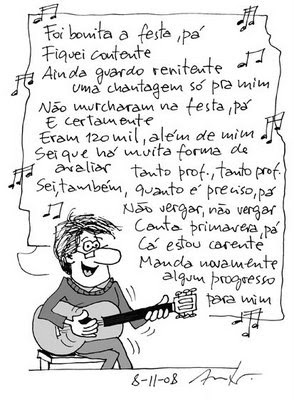 Foi bonita a festa, pá
Fiquei contente
Ainda guardo renitente
uma chantagem só pra mim
Não murcharam na festa, pá
E certamente
Eram 120 mil, além de mim
Sei que há muita forma de
avaliar tanto prof., tanto prof.
Sei, também, quanto é preciso, pá
Não vergar, não vergar
Canta primavera, pá
Cá estou carente
Manda novamente
algum progresso
para mim
8-11-08